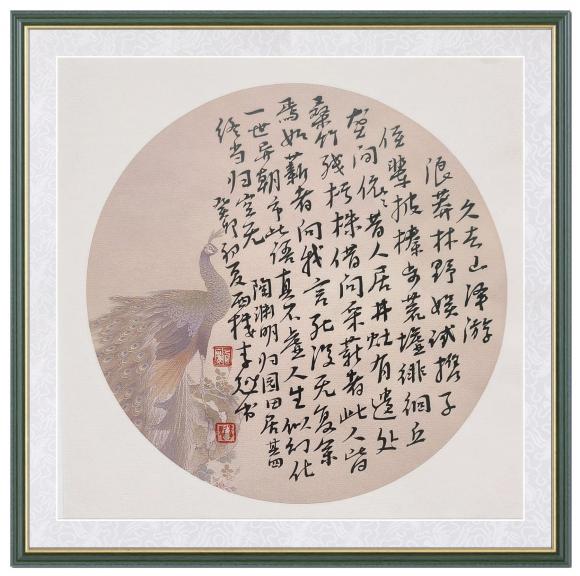 久去山泽游
浪莽林野娱试携子
侄辈披榛步荒墟徘徊丘
垄间依々昔人居井灶有遗处
桑竹残杇株借问采薪者此人皆
焉如薪者向我言死没无复余
一世异朝市此语真不虚人生似幻化
终当归空无
陶渊明归园田居其四
癸卯初夏西李书